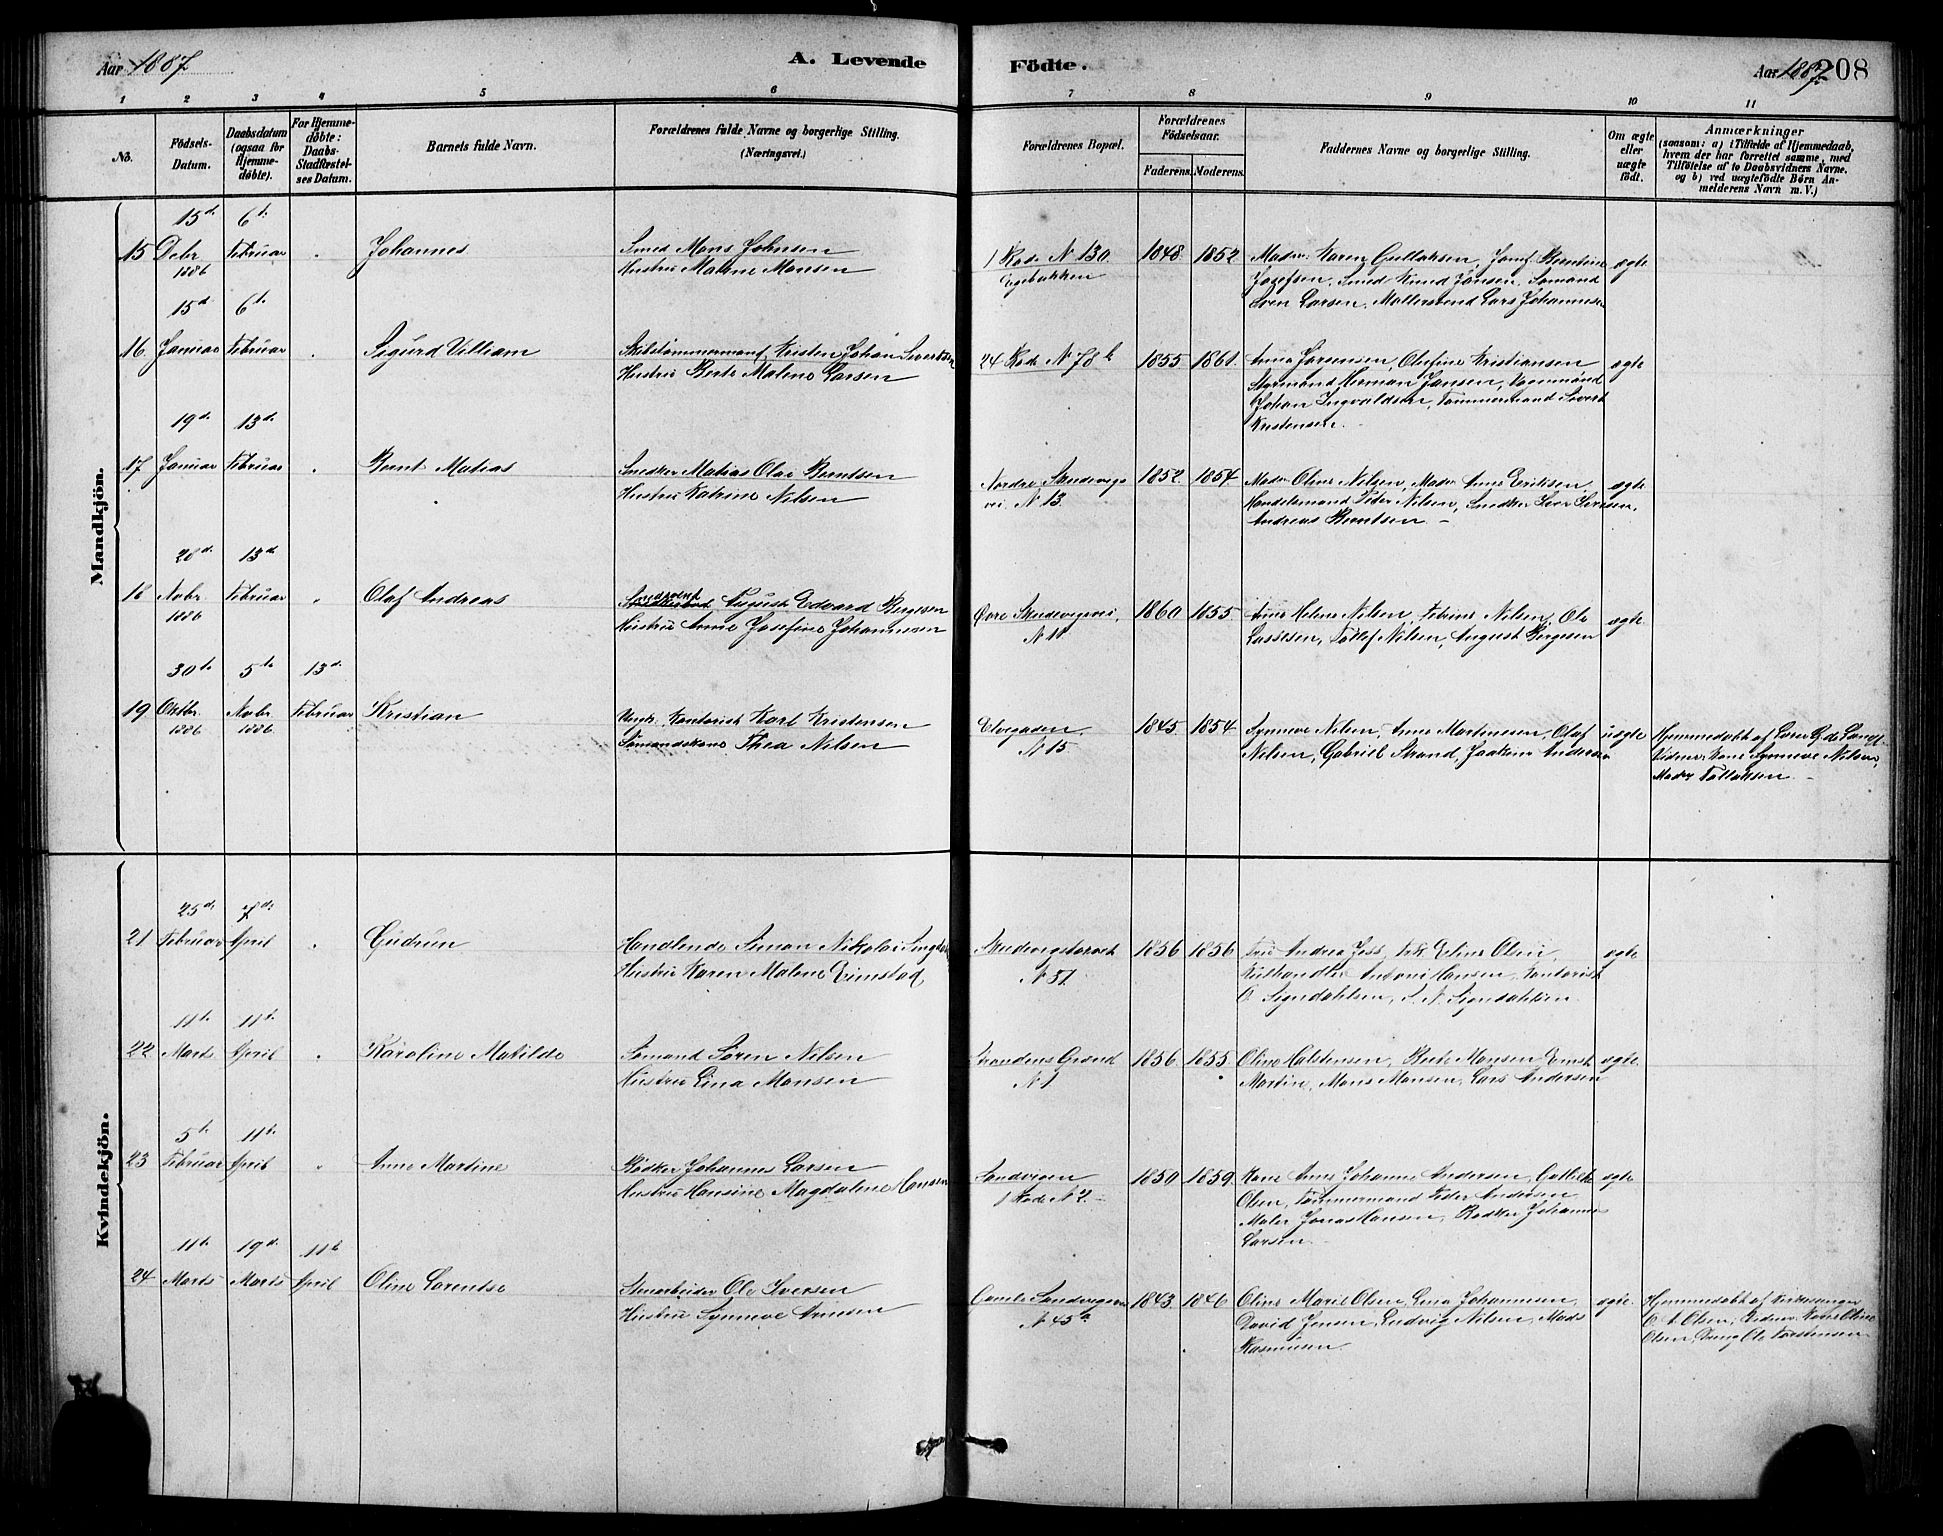 Aar 1887
A. Levende
Fødte.
Aar 1887
208
1 2 3 4 5 6 7 8 9 10 11
No.
Födsels-Datum.
Daabsdatum (ogsaa for Hjemme-döbte).
For Hjemme-döbte: Daabs-Stadfæstel-ses Datum.
Barnets fulde Navn.
Forældrenes fulde Navne og borgerlige Stilling.
(Næringsvei.)
Forældrenes Bopæl.
Forældrenes Födselsaar.
Faderens. Moderens.
Faddernes Navne og borgerlige Stilling.
Om ægte eller uægte födt.
Anmærkninger
(saasom: a) i Tilfælde af Hjemmedaab,
hvem der har forrettet samme, med
Tilföielse af to Daabsvidners Navne,
og b) ved uægtefödte Börn An-
melderens Navn m. V.)
Mandkjön.
15 15d Debr 1886 6te Februar Johannes
Smed Mons Johnsen
Hustru Malene Monsen
1 Rode N 130
Egebakken
1848 1852
Madm Karen Gullaksen, Jomf Berntine
Josefsen, Smed Knud Jansen, Sømand
Sven Larsen, Møllersvend Lars Johannesen
ægte
16 15d Januar 6te Februar Sigurd Villiam
Skibstømmermand Kristen Johan Sivertsen
Hustru Berte Malene Larsen
24 Rode N 78 b
1855 1861
Anna Jørgensen, Olefine Kristiansen
Styrmand Herman Jansen, Tømmermand
Johan Ingvaldsen, Tømmermand Sivert
Kristensen
ægte
17 19d Januar 13d Februar Bernt Matias
Snedker Matias Olai Berntsen
Hustru Katrine Nilsen
Nordre Sandvigs
vei N 13
1852 1854
Madm Oline Nilsen, Madm Anne Eriksen
Handelsmand Peder Nilsen, Snedker Iver Iversen,
Andreas Berntsen
ægte
18 28d Novbr 1886 13d Februar Olaf Andreas
August Edvard Bergesen
Hustru Anne Josefine Johannesen
Øvre Sandvigsvei
N 11
1860 1855
Anne Helene Nilsen, Nilsen, Ole
Lassesen, Tollef Nilsen, August Bergesen
ægte
19 30te Oktbr 1886 5te Novbr 1886 13d Februar Kristian
Ungk. Kontorist Karl Kristensen
Sømandskone Thea Nilsen
Elvegaden
N 15
1845 1854
Synneve Nilsen, Anne Martinesen, Olaf
Nilsen, Gabriel Strand, Joakim Andersen
uægte
Hjemmedøbt af
Vidner Kone Synneve Nilsen,
Madm Tollaksen
Kvindekjön.
21 25d Februar 7d April Gudrun
Handlende Simon Nikolai
Hustru Karen Malene Eimstad
Sandvigstorvet
N 51
1856 1856
Fru Andrea Jess, Frk Eline Olsen,
Antoni Hansen, Kontorist
O Signdahlsen, S. N. Signdahlsen
ægte
22 11te Marts 11te April Karoline Matilde
Sømand Søren Nilsen
Hustru Lina Monsen
Strandens Grænd
N 1
1856 1855
Oline Halstensen, Berte Monsen, Ernst
Martin, Mons Monsen, Lars Andersen
ægte
23 5te Februar 11te April Anne Martine
Bødker Johannes Larsen
Hustru Hansine Magdalene Hansen
Sandvigen
1 Rode N 2
1850 1859
Kone Anne Johanne Andersen,
Olsen, Tømmermand Peder Andersen
Maler Jonas Hansen, Bødker Johannes
Larsen
ægte
24 11te Marts 19d Marts 11te April Oline Lorentse
Stenarbeider Ole Iversen
Hustru Synneve Arnesen
Gamle Sandvigsvei
N 45a
1843 1846
Oline Marie Olsen, Lina Johannesen,
David Jensen, Ludvig Nilsen, Mads
Rasmussen
ægte
Hjemmedøbt af Kirkesanger
O A Olsen, Vidner Kone Oline
Olsen, Dreng Ole Torstensen